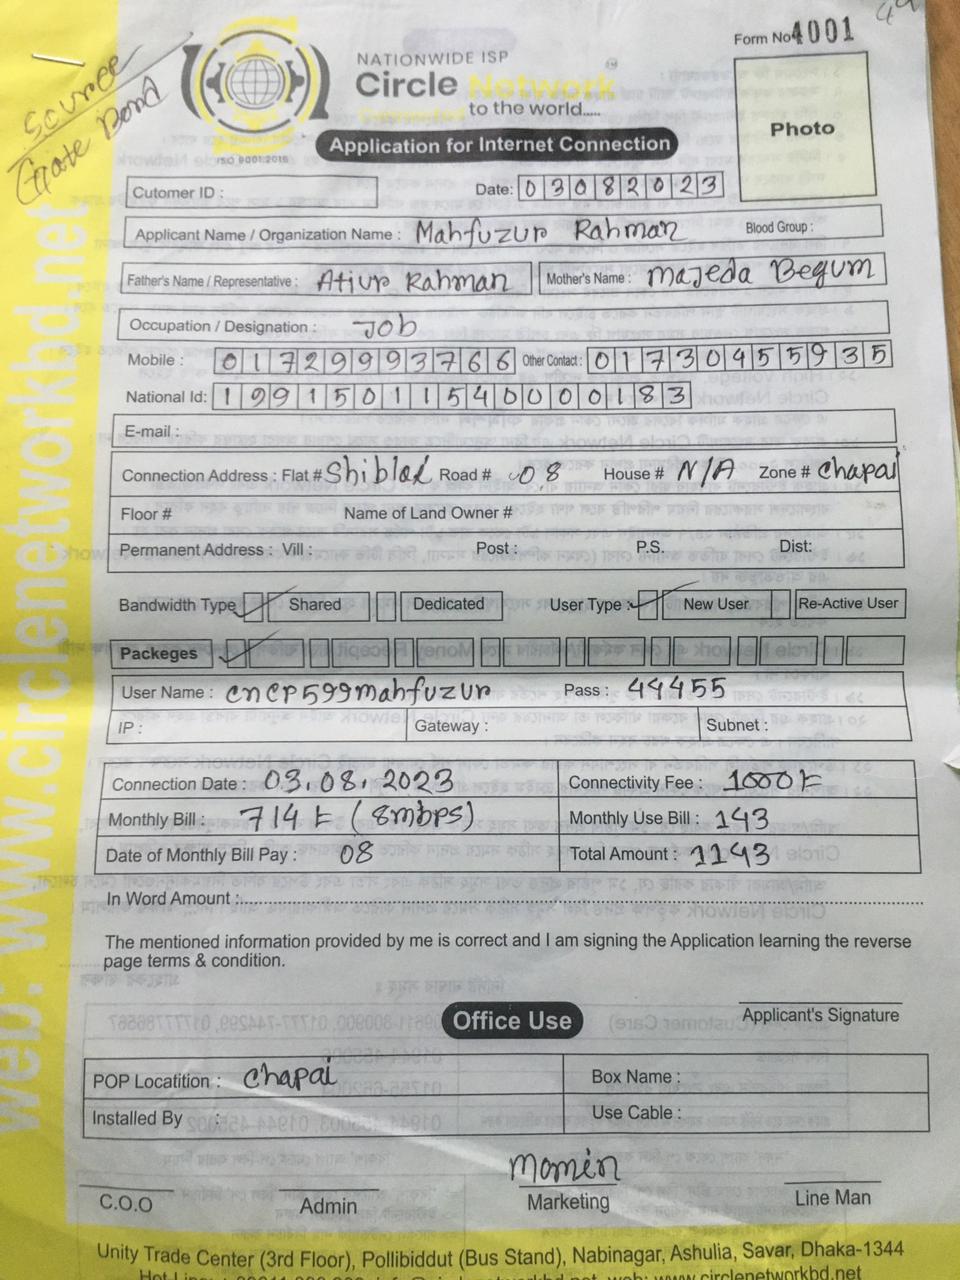 49
Source
Gate Bond
NATIONWIDE ISP
Circle Network
to the world.....
ISO 9001:2015
Form No 4001
Photo
Application for Internet Connection
Cutomer ID :
Date: 03082023
Applicant Name / Organization Name : Mahfuzur Rahman Blood Group :
Father's Name / Representative : Atiur Rahman Mother's Name : Majeda Begum
Occupation / Designation : Job
Mobile : 01729993766 Other Contact : 01730455935
National Id: 19915011540000183
E-mail :
Connection Address : Flat # Shiblal Road # 08 House # N/A Zone # Chapai
Floor # Name of Land Owner #
Permanent Address : Vill : Post : P.S. Dist:
Bandwidth Type Shared Dedicated User Type : New User Re-Active User
Packeges
User Name : cncp599mahfuzur Pass : 44455
IP : Gateway : Subnet :
Connection Date : 03.08.2023 Connectivity Fee : 1000 t
Monthly Bill : 714 t (8mbps) Monthly Use Bill : 143
Date of Monthly Bill Pay : 08 Total Amount : 1143
In Word Amount :
The mentioned information provided by me is correct and I am signing the Application learning the reverse
page terms & condition.
Applicant's Signature
Office Use
POP Locatition : Chapai Box Name :
Installed By : Use Cable :
Momin
C.O.O Admin Marketing Line Man
Unity Trade Center (3rd Floor), Pollibiddut (Bus Stand), Nabinagar, Ashulia, Savar, Dhaka-1344
web: www.circlenetworkbd.net
web: www.circlenetworkbd.net